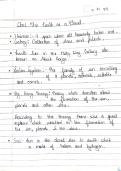 Ch-1 The Earth as a Planet
Universe : A space where all heavenly bodies exist.
Galaxy : Collection of stars and planets.
Earth lies in the Milky Way Galaxy also
known as Akash Ganga
Solar System : The family of sun consisting
of 8 planets, asteroids, satellites
and comets.
Big Bang Theory : Theory which describes about
the formation of the sun,
planets and other stars.
According to this theory there was a great
explosion which resulted in the formation of
the sun, planets & the stars.
Sun : Sun is the closest star to earth which
is made of helium and hydrogen.